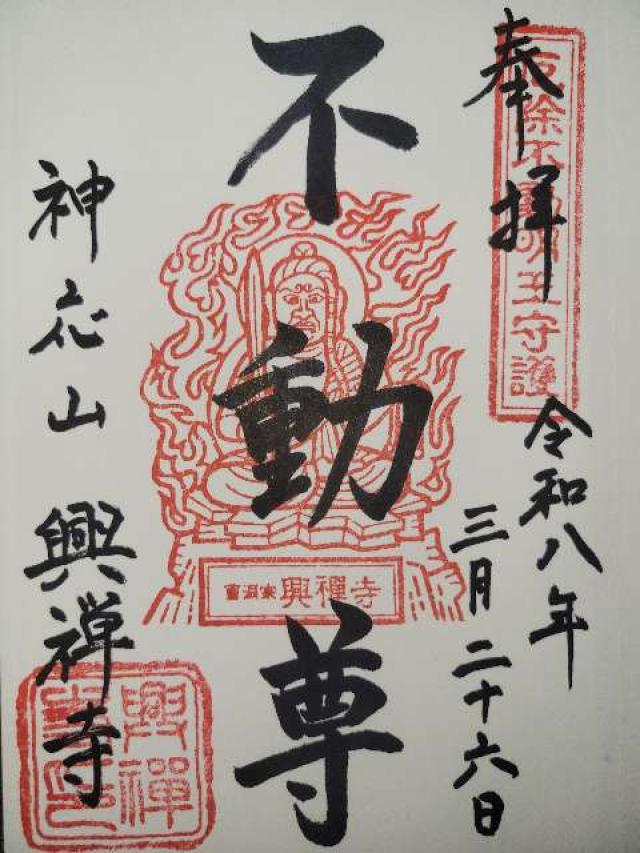 奉拝
厄除不動明王守護
令和八年
三月二十六日
不動尊
曹洞宗 興禅寺
神応山 興禅寺
興禅
寺印